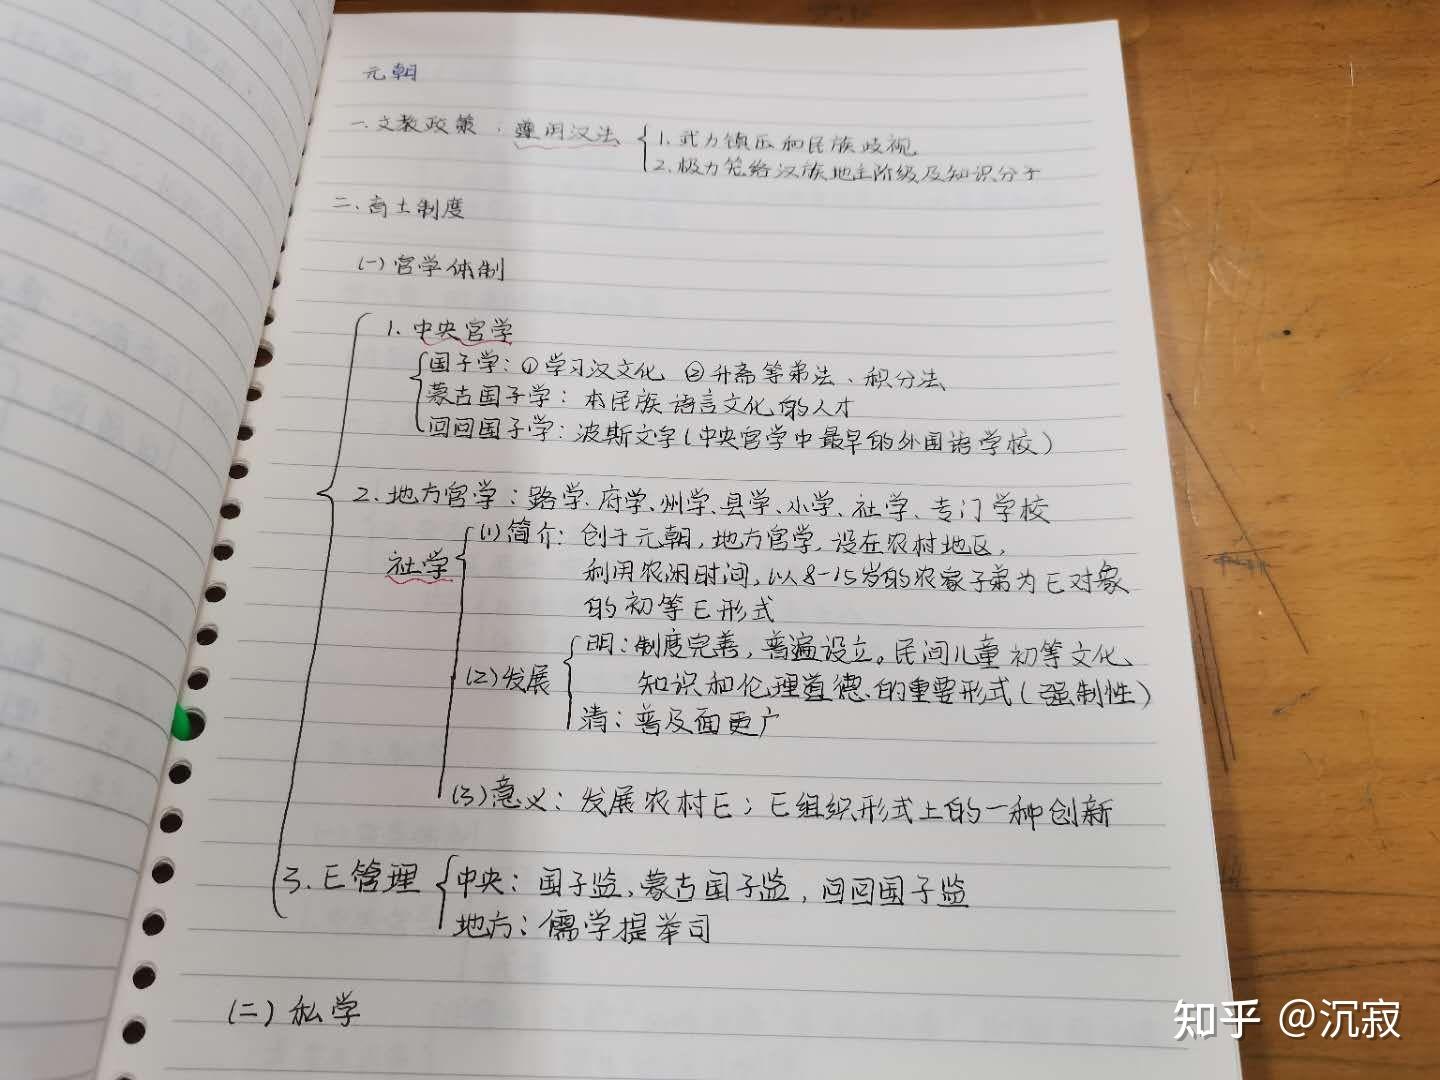 元朝
一.文教政策：遵用汉法 1.武力镇压和民族歧视
2.极力笼络汉族地主阶级及知识分子
二.育士制度
(一)官学体制
1.中央官学
国子学：①学习汉文化 ②升斋等弟法、积分法
蒙古国子学：本民族语言文化的人才
回回国子学：波斯文字(中央官学中最早的外国语学校)
2.地方官学：路学、府学、州学、县学、小学、社学、专门学校
社学 (1)简介：创于元朝,地方官学,设在农村地区,
利用农闲时间,以8-15岁的农家子弟为E对象
的初等E形式
(2)发展 明：制度完善,普遍设立。民间儿童初等文化
知识和伦理道德的重要形式(强制性)
清：普及面更广
(3)意义：发展农村E；E组织形式上的一种创新
3.E管理 中央：国子监,蒙古国子监,回回国子监
地方：儒学提举司
(二)私学
知乎 @沉寂